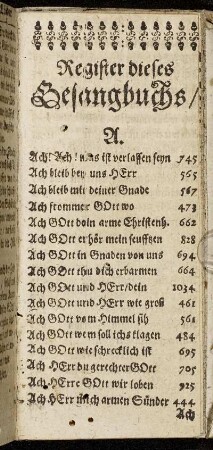 Register dieses
Gesangbuchs/
A.
Ach! Ach! was ist verlassen seyn 745
Ach bleib bey uns HErr 565
Ach bleib mit deiner Gnade 567
Ach frommer GOtt wo 473
Ach GOtt dein arme Christenh. 662
Ach GOtt erhör mein seufftzen 828
Ach GOtt in Gnaden von uns 694
Ach GOtt thu dich erbarmen 664
Ach GOtt und HErr/dein 1034
Ach GOtt und HErr wie groß 461
Ach GOtt vom Himmel sih 561
Ach GOtt wem soll ichs klagen 484
Ach GOtt wie schrecklich ist 695
Ach HErr du gerechter GOtt 705
Ach HErre GOtt wir loben 925
Ach HErr mich armen Sünder 444
Ach